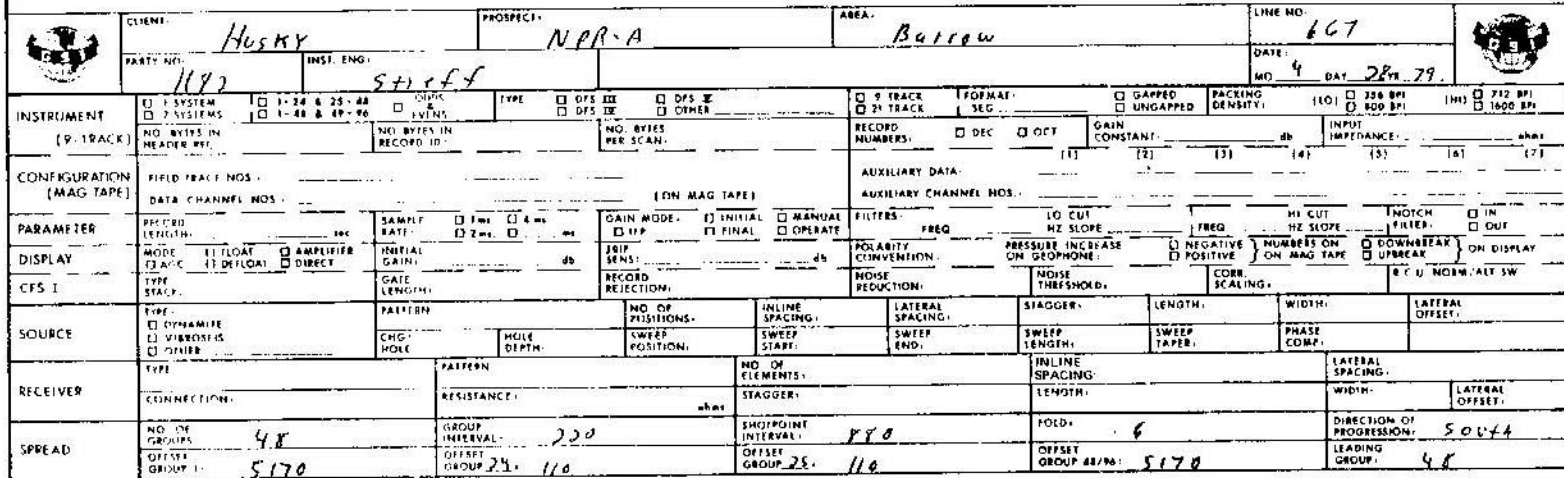 CLIENT: Husky PROSPECT: NPR-A AREA: Barrow LINE NO: 667
PARTY NO: 1182 INST. ENG: Streff DATE: MO 4 DAY 28 YR 79
G S I
INSTRUMENT (9-TRACK) □ 1 SYSTEM □ 2 SYSTEMS □ 1-24 & 25-48 □ 1-48 & 49-96 □ ODDS & EVENS TYPE □ DFS III □ DFS IV □ DFS V □ OTHER □ 9 TRACK □ 21 TRACK FORMAT: SEG □ GAPPED □ UNGAPPED PACKING DENSITY: (LO) □ 356 BPI □ 800 BPI (HI) □ 712 BPI □ 1600 BPI
NO. BYTES IN HEADER REC. NO. BYTES IN RECORD ID: NO. BYTES PER SCAN: RECORD NUMBERS: □ DEC □ OCT GAIN CONSTANT: db INPUT IMPEDANCE: ohms
CONFIGURATION (MAG TAPE) FIELD TRACE NOS: AUXILIARY DATA: (1) (2) (3) (4) (5) (6) (7)
DATA CHANNEL NOS: (ON MAG TAPE) AUXILIARY CHANNEL NOS.:
PARAMETER RECORD LENGTH: sec SAMPLE RATE: □ 1 ms □ 4 ms □ 2 ms □ ms GAIN MODE: □ INITIAL □ MANUAL □ IFP □ FINAL □ OPERATE FILTERS: FREQ LO CUT HZ SLOPE FREQ HI CUT HZ SLOPE NOTCH FILTER: □ IN □ OUT
DISPLAY MODE □ FLOAT □ AMPLIFIER □ AGC □ DEFLOAT □ DIRECT INITIAL GAIN: db TRIP SENS: db POLARITY CONVENTION: PRESSURE INCREASE ON GEOPHONE: □ NEGATIVE □ POSITIVE } NUMBERS ON MAG TAPE □ DOWNBREAK □ UPBREAK } ON DISPLAY
CFS I TYPE STACK: GATE LENGTH: RECORD REJECTION: NOISE REDUCTION: NOISE THRESHOLD: CORR. SCALING: R.C.U. NORM/ALT SW
SOURCE TYPE: □ DYNAMITE □ VIBROSEIS □ OTHER PATTERN NO. OF POSITIONS: INLINE SPACING: LATERAL SPACING: STAGGER: LENGTH: WIDTH: LATERAL OFFSET:
CHG: HOLE HOLE DEPTH: SWEEP POSITION: SWEEP START: SWEEP END: SWEEP LENGTH: SWEEP TAPER: PHASE COMP:
RECEIVER TYPE PATTERN NO. OF ELEMENTS: INLINE SPACING: LATERAL SPACING:
CONNECTION: RESISTANCE: ohms STAGGER: LENGTH: WIDTH: LATERAL OFFSET:
SPREAD NO. OF GROUPS 48 GROUP INTERVAL: 220 SHOTPOINT INTERVAL: 880 FOLD: 6 DIRECTION OF PROGRESSION: South
OFFSET GROUP 1: 5170 OFFSET GROUP 24: 110 OFFSET GROUP 25: 110 OFFSET GROUP 48/96: 5170 LEADING GROUP: 48